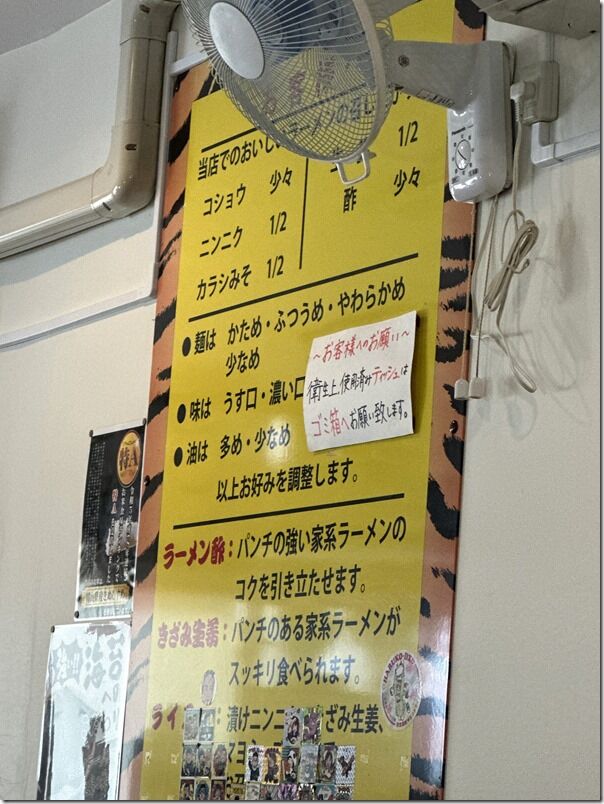 ラーメンの召し
当店でのおいしい
コショウ 少々
ニンニク 1/2
カラシみそ 1/2
1/2
酢 少々
●麺は かため・ふつうめ・やわらかめ
少なめ
●味は うす口・濃い口
●油は 多め・少なめ
以上お好みを調整します。
~お客様へのお願い~
衛生上、使用済みティッシュは
ゴミ箱へお願い致します。
ラーメン酢:パンチの強い家系ラーメンの
コクを引き立たせます。
きざみ生姜:パンチのある家系ラーメンが
スッキリ食べられます。
ライ
:漬けニンニ
ざみ生姜、
マヨ
特A
海苔
Panasonic